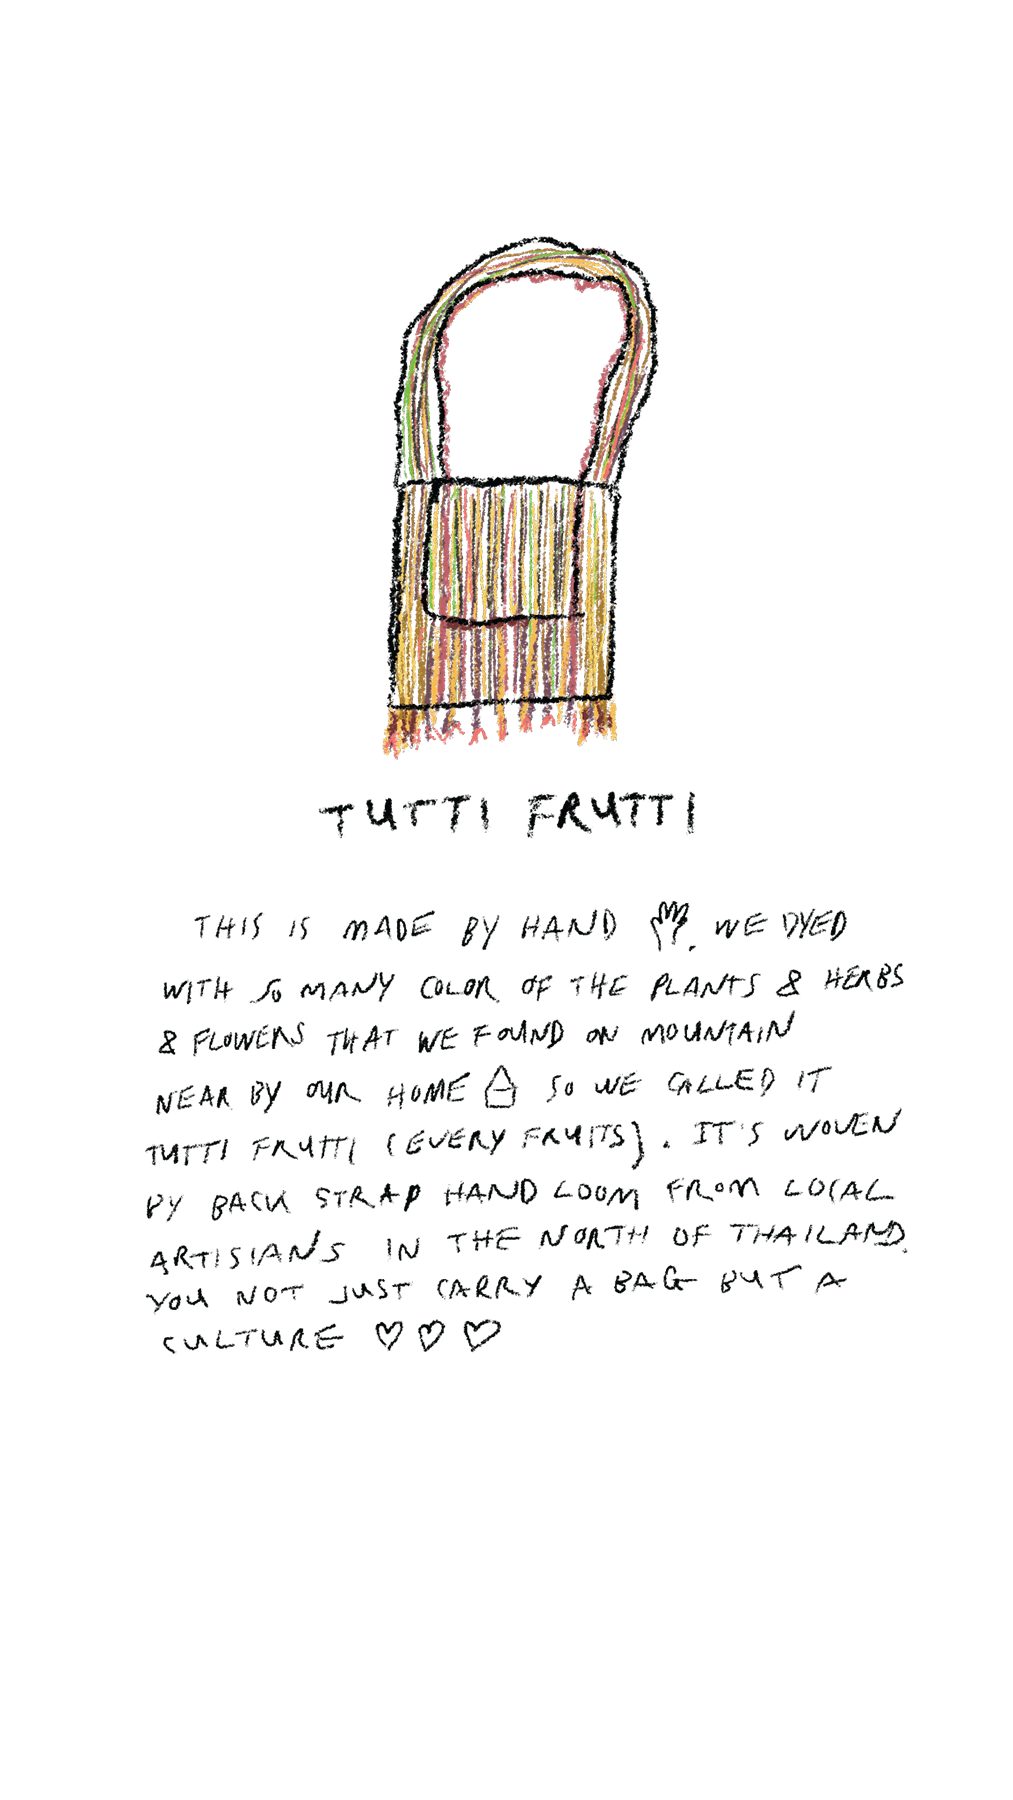 TUTTI FRUTTI
THIS IS MADE BY HAND . WE DYED
WITH SO MANY COLOR OF THE PLANTS & HERBS
& FLOWERS THAT WE FOUND ON MOUNTAIN
NEAR BY OUR HOME SO WE CALLED IT
TUTTI FRUTTI (EVERY FRUITS}. IT'S WOVEN
BY BACK STRAP HAND LOOM FROM LOCAL
ARTISIANS IN THE NORTH OF THAILAND.
YOU NOT JUST CARRY A BAG BUT A
CULTURE ♡ ♡ ♡